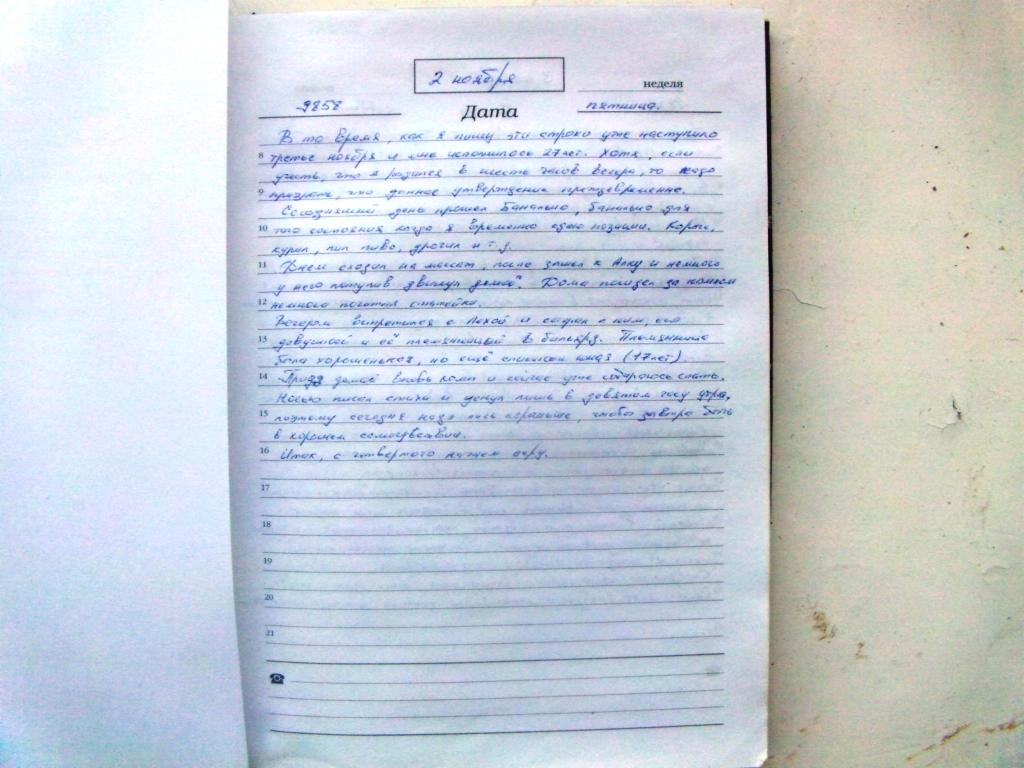 2 ноября
неделя
9858 Дата пятница.
В то время, как я пишу эти строки уже наступило
8 третье ноября и мне исполнилось 27 лет. Хотя, если
учесть, что я родился в шесть часов вечера, то надо
9 признать, что данное утверждение преждевременно.
Сегодняшний день прошел банально, банально для
10 того состояния когда я временно сдаю позиции. Короче,
курил, пил пиво, дрочил и т.д.
11 Днем сходил на массаж, после зашел к Алку и немного
у него потупив двинул домой. Дома посидел за компом
12 немного почитал
Вечером встретился с Лехой и сходил с ним, его
13 девушкой и её племянницей в бильярд. Племянница
была хорошенькая, но ещё слишком юная (17 лет).
14 Придя домой вновь комп и сейчас уже собираюсь спать.
Ночью писал стихи и уснул лишь в девятом часу утра,
15 поэтому сегодня надо лечь пораньше, чтобы завтра быть
в хорошем самочувствии.
16 Итак, с четвертого начнем игру.
17
18
19
20
21